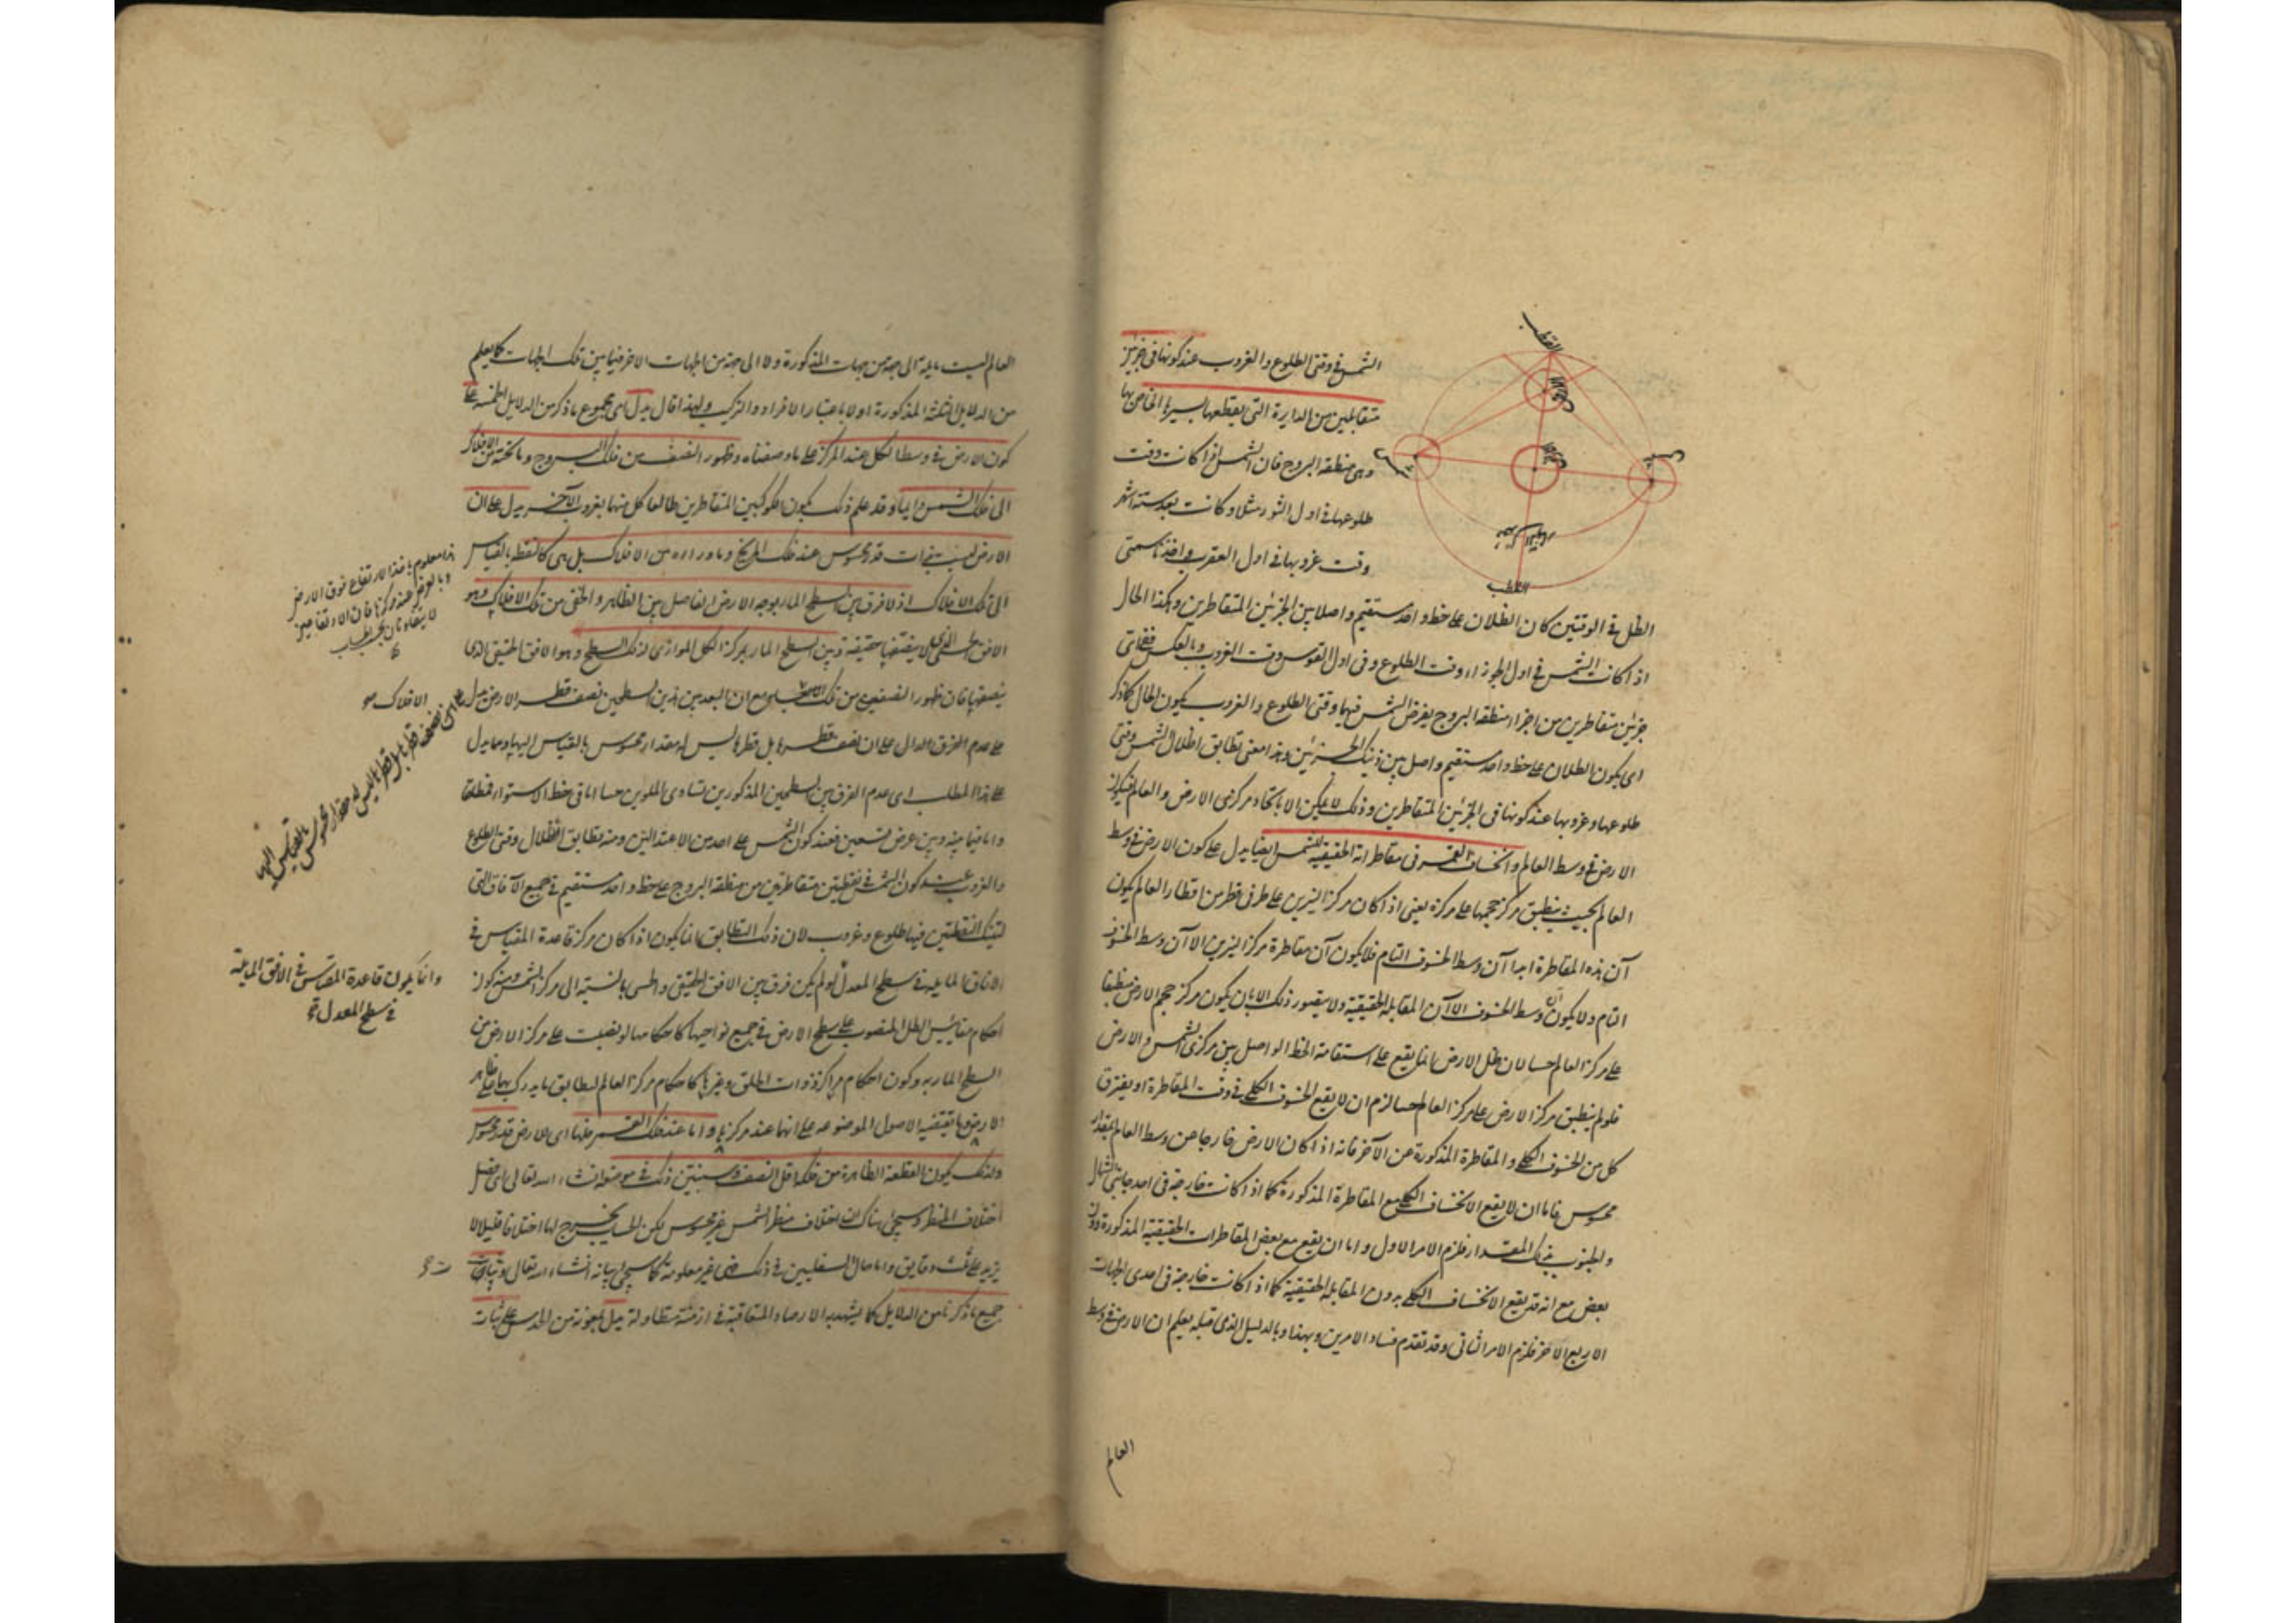 القطب
الارض
الارض
القطب
الشمس في وقتى الطلوع والغروب عند كونها في جزئين
متقابلين من الدايرة التى يقطعها بسيرها الخاص بها
وهى منطقة البروج فان الشمس اذا كانت وقت
طلوعها في اول الثور مثلا وكانت بعد ستة اشهر
وقت غروبها في اول العقرب واخذنا سمتى
الظل في الوقتين كان الظلان على خط واحد مستقيم واصلا بين الجزئين المتقاطرين وهكذا الحال
اذا كانت الشمس في اول الجوزاء وقت الطلوع وفى اول القوس وقت الغروب وبالعكس ففى اى
جزئين متقاطرين من اجزاء منطقة البروج يفرض الشمس فيهما وقتى الطلوع والغروب يكون الحال كما ذكر
اى يكون الظلان على خط واحد مستقيم واصل بين ذينك الجزئين وهذا معنى تطابق اظلال الشمس وقتى
طلوعها وغروبها عند كونها في الجزئين المتقاطرين وذلك لا يمكن الا باتحاد مركزى الارض والعالم فيكون
الارض في وسط العالم وانخساف القمر في مقاطراته الحقيقية للشمس ايضا يدل على كون الارض في وسط
العالم بحيث ينطبق مركز حجمها على مركزه يعنى اذا كان مركزا النيرين على طرفى قطر من اقطار العالم يكون
آن هذه المقاطرة ابدا آن وسط الخسوف التام فلا يكون آن مقاطرة مركزا النيرين الا آن وسط الخسوف
التام ولا يكون آن وسط الخسوف الا آن المقابلة الحقيقية ولا يتصور ذلك الا بان يكون مركز حجم الارض منطبقا
على مركز العالم حسا لان ظل الارض انما يقع على استقامة الخط الواصل بين مركزى الشمس والارض
فلو لم ينطبق مركز الارض على مركز العالم حسا لزم ان لا يقع الخسوف الكلى في وقت المقاطرة او يفترق
كل من الخسوف الكلى والمقاطرة المذكورة عن الآخر فانه اذا كان الارض خارجا عن وسط العالم بمقدار
محسوس فاما ان لا يقع الانخساف الكلى مع المقاطرة المذكورة كما اذا كانت خارجة في احد جانبى الشمال
والجنوب بذلك المقدار فلزم الامر الاول واما ان يقع مع بعض المقاطرات الحقيقية المذكورة دون
بعض مع انه قد يقع الانخساف الكلى بدون المقابلة الحقيقية كما اذا كانت خارجة في احدى الجهات
الاربع الاخر فلزم الامر الثانى وقد تقدم فساد الامرين وبهذا وبالدليل الذى قبله يعلم ان الارض في وسط
العالم
العالم ليست مايلة الى جهة من جهات المذكورة ولا الى جهة من الجهات الاخر فيما بين تلك الجهات كما يعلم
من الدلايل الثلثة المذكورة اولا باعتبار الافراد والتركيب ولهذا قال يدل اى مجموع ما ذكر من الدلايل الخمسة على
كون الارض في وسط الكل عند المركز على ما وصفناه وظهور النصف من فلك البروج وما تحته من الافلاك
الى فلك الشمس دايما وقد علم ذلك بكون الكوكبين المتقاطرين طالعا كل منهما بغروب الآخر يدل على ان
الارض ليست بذات قدر محسوس عند فلك المريخ وما وراءه من الافلاك بل هى كالنقطة بالقياس
الى تلك الافلاك اذ لا فرق بين السطح المار بوجه الارض الفاصل بين الظاهر والخفى من تلك الافلاك وهو
الافق الحسى الذى لا ينصفها حقيقة وبين السطح المار بمركز الكل الموازى لذلك السطح وهو الافق الحقيقى الذى
ينصفها فان ظهور النصف من تلك الافلاك مع ان البعد بين هذين السطحين نصف قطر الارض يدل
على عدم الفرق الدال على ان نصف قطرها بل قطرها ليس له مقدار محسوس بالقياس اليها ومما يدل
على هذا المطلب اى عدم الفرق بين السطحين المذكورين تساوى الملوين حسا اما في خط الاستواء فمطلقا
واما فيما بينه وبين عرض تسعين فعند كون الشمس على احد من الاعتدالين ومنه تطابق اظلال وقتى الطلوع
والغروب عند كون الشمس في نقطتين متقاطرتين من منطقة البروج على خط واحد مستقيم في جميع الآفاق التى
لتينك النقطتين فيها طلوع وغروب لان ذلك التطابق انما يكون اذا كان مركز قاعدة المقياس في
الافاق المايلة في سطح المعدل ولم يكن فرق بين الافق الحقيقى والحسى بالنسبة الى مركز الشمس ومنه كون
احكام مقاييس الظل المنصوب على سطح الارض في جميع نواحيها كاحكامها لو نصبت على مركز الارض من
السطح المار به وكون احكام مراكز ذوات الحلق وغيرها كاحكام مركز العالم لتطابق ما يدرك بها على ظاهر
الارض ما يقتضيه الاصول الموضوعة على انها عند مركزها واما عند فلك القمر فلها اى الارض قدر محسوس
ولذلك يكون القطعة الظاهرة من فلكه اقل من النصف وسنبين ذلك في موضعه انشاء الله تعالى اى فصل
اختلاف المنظر وسيجئ هناك ان اختلاف منظر الشمس غير محسوس لكن الحساب يخرج لها اختلافا قليلا لا
يزيد على ثلث دقايق واما حال السفليين في ذلك فهى غير معلومة كما سيجئ بيانه انشاء الله تعالى وتبات
جميع ما ذكرنا من الدلايل كما يشهد به الارصاد المتعاقبة في ازمنة متطاولة يدل بمعونة من الحدس على ثبات
هذا معلوم باخذ الارتفاع فوق الارض
وبالفرض عند مركزها فان الارتفاعين
لا يتفاوتان
الافلاك
اى نصف قطرها بل قطرها ليس له مقدار محسوس بالقياس اليها
وانما يكون قاعدة المقياس في الافق المايلة
في سطح المعدل